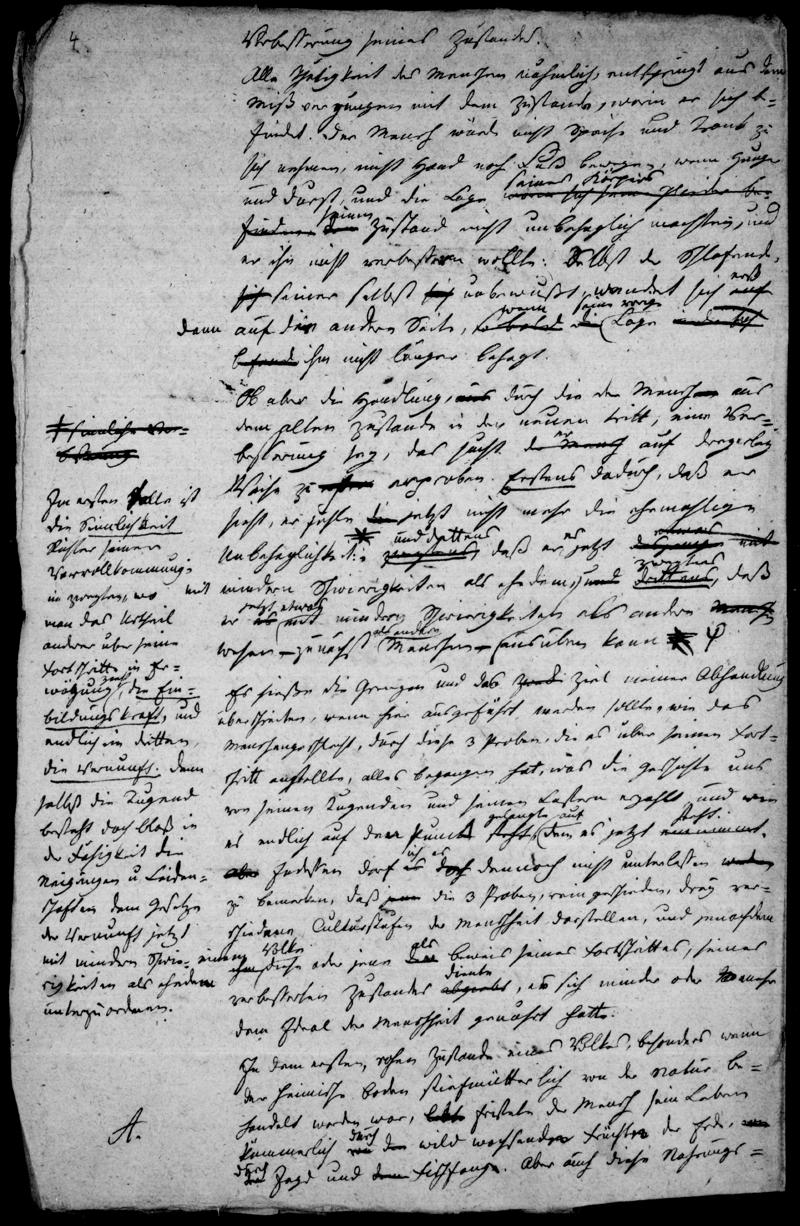 4
Verbesserung seines Zustandes.
Alle Thätigkeit des Menschen nähmlich, entspringt aus dem
Mißvergnügen mit dem Zustande, worin er sich be=
findet. Der Mensch würde nicht Speise und Trank zu
sich nehmen, nicht Hand noch Fuß bewegen, wenn Hunger
und Durst, und die Lage seines Körpers
seinen Zustand nicht unbehaglich machten, und
er ihn nicht verbessern wollte. Selbst der Schlafende,
seiner selbst unbewußt, wendet sich erst
dann auf die andere Seite, wenn seine vorige Lage
ihm nicht länger behagt.
Ob aber die Handlung, durch die der Mensch aus
dem alten Zustande in den neuen tritt, eine Ver=
besserung sey, das sucht er auf dreyerley
Weise zu erproben. Erstens dadurch, daß er
sieht, er fühle jetzt nicht mehr die ehemahlige
Unbehaglichkeit; und drittens daß er es jetzt
mit mindern Schwierigkeiten als ehedem, zweytens, daß
er jetzt etwas mit mindern Schwierigkeiten als andere
Wesen – zunächst als andere Menschen – ausüben kann
Es hieße die Grenzen und das Ziel meiner Abhandlung
überschreiten, wenn hier ausgeführt werden sollte, wie das
Menschengeschlecht, durch diese 3 Proben, die es über seinen Fort=
schritt anstellte, alles begangen hat, was die Geschichte uns
von seinen Tugenden und seinen Lastern erzählt und wie
es endlich auf den Punct gelangte auf dem es jetzt steht.
Indessen darf ich es dennoch nicht unterlassen
zu bemerken, daß die 3 Proben, rein geschieden, drey ver=
schiedene Culturstufen der Menschheit darstellen, und jenachdem
einem Volke diese oder jene als Beweis seines Fortschrittes, seines
verbesserten Zustandes diente, es sich minder oder mehr
dem Ideal der Menschheit genährt hatte.
In dem ersten, rohen Zustande eines Volkes, besonders wenn
der heimische Boden stiefmütterlich von der Natur be=
handelt worden war, fristete der Mensch sein Leben
kümmerlich durch wild wachsende Früchte der Erde,
durch Jagd und Fischfang. Aber auch diese Nahrungs=
Im ersten Falle ist
die Sinnlichkeit
Richter seiner
Vervollkommnung,
im zweyten, wo
man das Urtheil
anderer über seine
Fortschritte in Er=
wägung zieht, die Ein=
bildungskraft, und
endlich im dritten,
die Vernunft. Denn
selbst die Tugend
besteht doch bloß in
der Fähigkeit die
Neigungen u Leiden=
schaften dem Gesetze
der Vernunft jetzt
mit mindern Schwie=
rigkeiten als ehedem
unterzuordnen.
A.